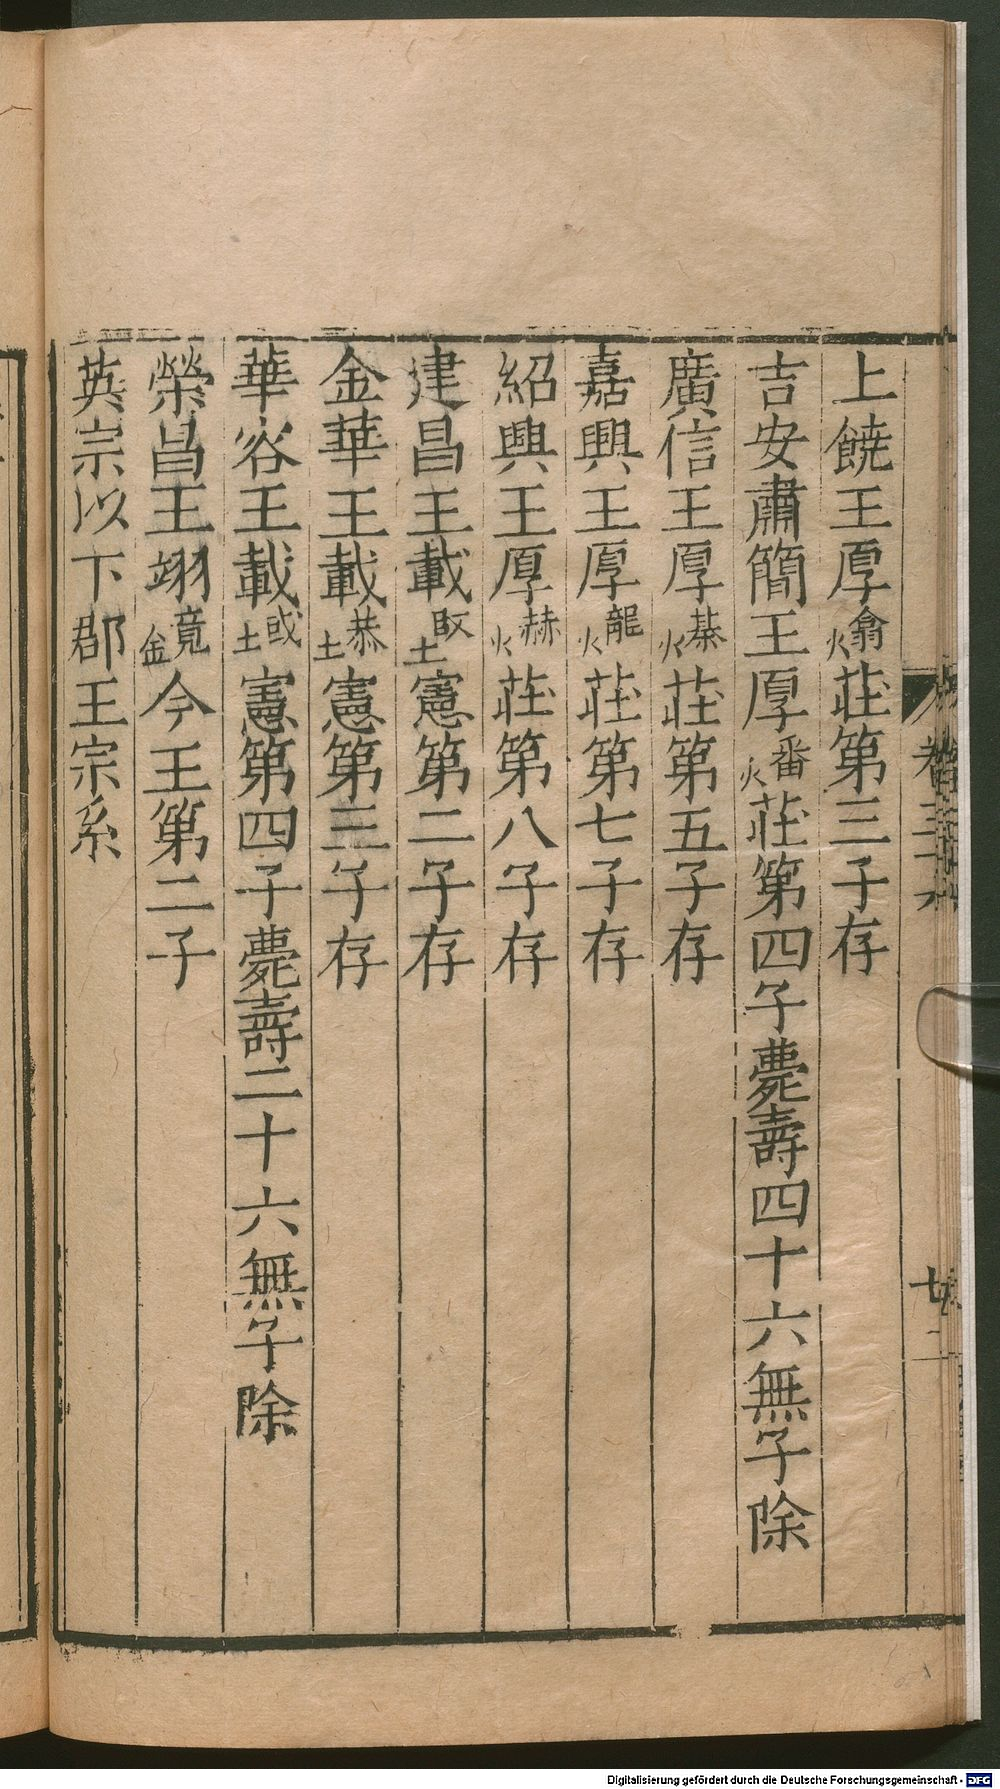 上饒王厚熻莊第三子存
吉安肅簡王厚燔莊第四子薨壽四十六無子除
廣信王厚莊第五子存
嘉興王厚爖莊第七子存
紹興王厚爀莊第八子存
建昌王載憲第二子存
金華王載塨憲第三子存
華容王載域憲第四子薨壽二十六無子除
榮昌王翊鏡今王第二子
英宗以下郡王宗系
Digitalisierung gefördert durch die Deutsche Forschungsgemeinschaft - DFG